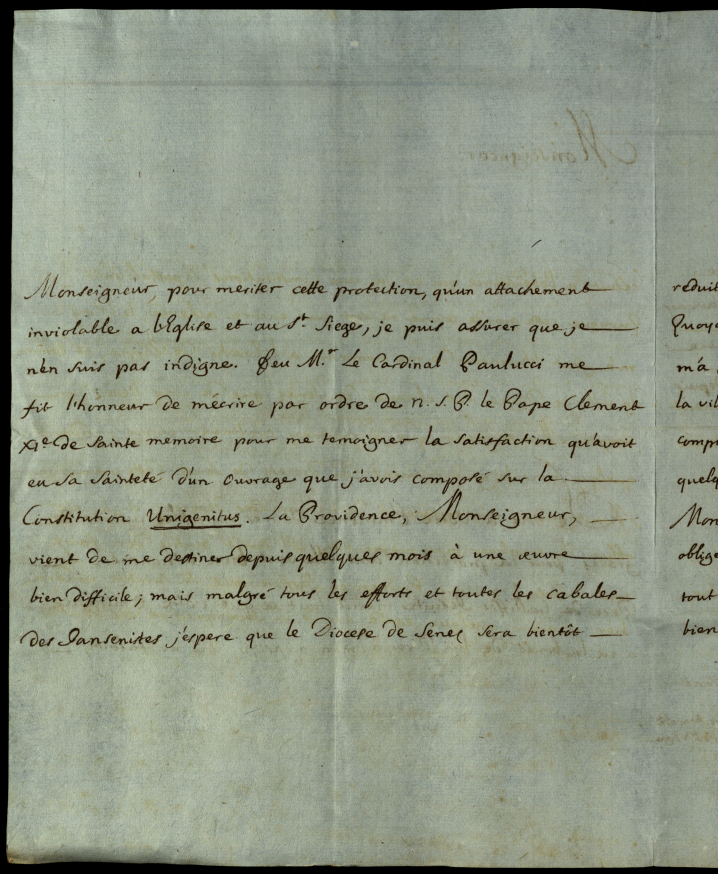 Monseigneur, pour meriter cette protection, qu'un attachement
inviolable a l'Eglise et au St. Siege, je puis assurer que je
n'en suis pas indigne. Feu M.r Le Cardinal Paulucci me
fit l'honneur de m'écrire par ordre de n. s. P. le Pape Clement
XI.e de sainte memoire pour me temoigner la satisfaction qu'avoit
eu sa sainteté d'un ouvrage que j'avois composé sur la
Constitution Unigenitus. La Providence, Monseigneur,
vient de me destiner depuis quelques mois à une œuvre
bien difficile; mais malgré tous les efforts et toutes les cabales
des Jansenistes j'espere que le Diocese de Senez sera bientôt
reduit
Quoyq
m'a
la vil
compr
quelq
Mon
oblige
tout
bien